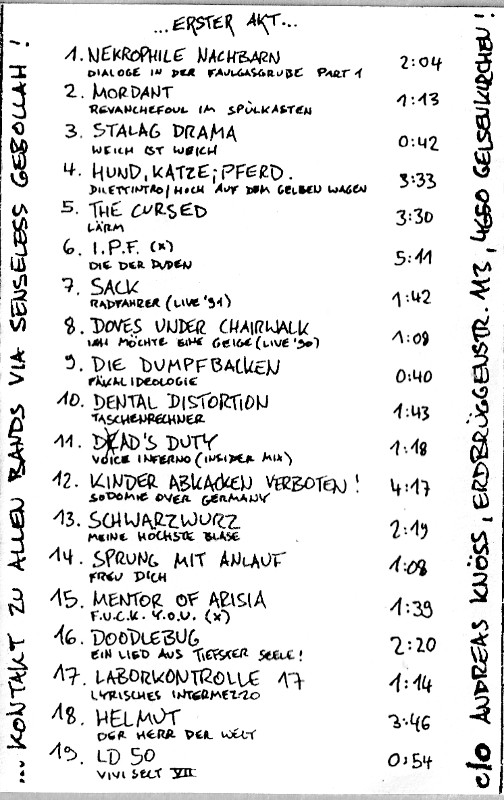 ...ERSTER AKT...
1. NEKROPHILE NACHBARN 2:04
DIALOGE IN DER FAULGASGRUBE PART 1
2. MORDANT 1:13
REVANCHEFOUL IM SPÜLKASTEN
3. STALAG DRAMA 0:42
WEICH IST WEICH
4. HUND, KATZE, PFERD. 3:33
DILETTINTRO/HOCH AUF DEM GELBEN WAGEN
5. THE CURSED 3:30
LÄRM
6. I.P.F. (*) 5:11
DIE DER DUDEN
7. SACK 1:42
RADFAHRER (LIVE '91)
8. DOVES UNDER CHAIRWALK 1:09
ICH MÖCHTE EINE GEIGE (LIVE '90)
9. DIE DUMPFBACKEN 0:40
FÄKALIDEOLOGIE
10. DENTAL DISTORTION 1:43
TASCHENRECHNER
11. DEAD'S DUTY 1:18
VOICE INFERNO (INSIDER MIX)
12. KINDER ABKACKEN VERBOTEN! 4:17
SODOMIE OVER GERMANY
13. SCHWARZWURZ 2:19
MEINE HÖCHSTE BLASE
14. SPRUNG MIT ANLAUF 1:08
FREU DICH
15. MENTOR OF ARISIA 1:39
F.U.C.K. Y.O.U. (*)
16. DOODLEBUG 2:20
EIN LIED AUS TIEFSTER SEELE!
17. LABORKONTROLLE 17 1:14
LYRISCHES INTERMEZZO
18. HELMUT 3:46
DER HERR DER WELT
19. LD 50 0:54
VIVISECT VII
...KONTAKT ZU ALLEN BANDS VIA SENSELESS GEBOLLAH!
c/o ANDREAS KNÖSS, ERDBRÜGGENSTR. 113, 4650 GELSENKIRCHEN!